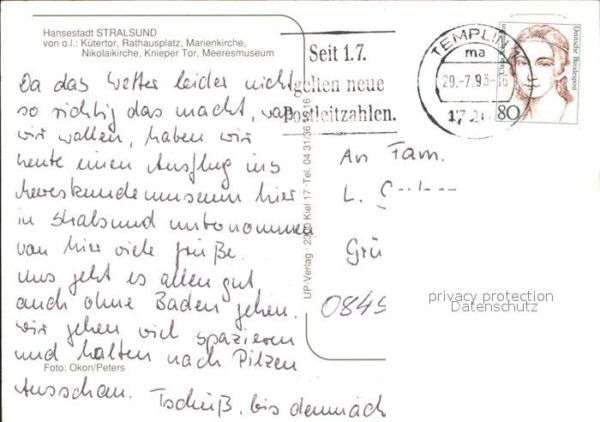 Hansestadt STRALSUND
von o.l.: Kütertor, Rathausplatz, Marienkirche,
Nikolaikirche, Knieper Tor, Meeresmuseum
Da das Wetter leider nicht
so richtig das macht, was
wir wollen, haben wir
heute einen Ausflug ins
Meereskundemuseum hier
in Stralsund unternommen
von hier viele Grüße.
Uns geht es allen gut,
auch ohne Baden gehen.
Wir gehen viel spazieren
und halten nach Pilzen
Ausschau. Tschüß, bis demnäch
Foto: Okon/Peters
UP-Verlag 2300 Kiel 17 Tel. 04 31 36
Seit 1.7.
gelten neue
Postleitzahlen.
TEMPLIN
ma
29.-7.93-16
172
Deutsche Bundespost
80
An Fam.
L.
Grü
0845
privacy protection
Datenschutz